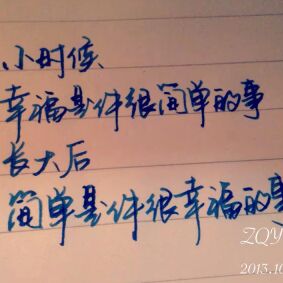 小时候、
幸福是件很简单的事
长大后
简单是件很幸福的事
ZQY
2013.10